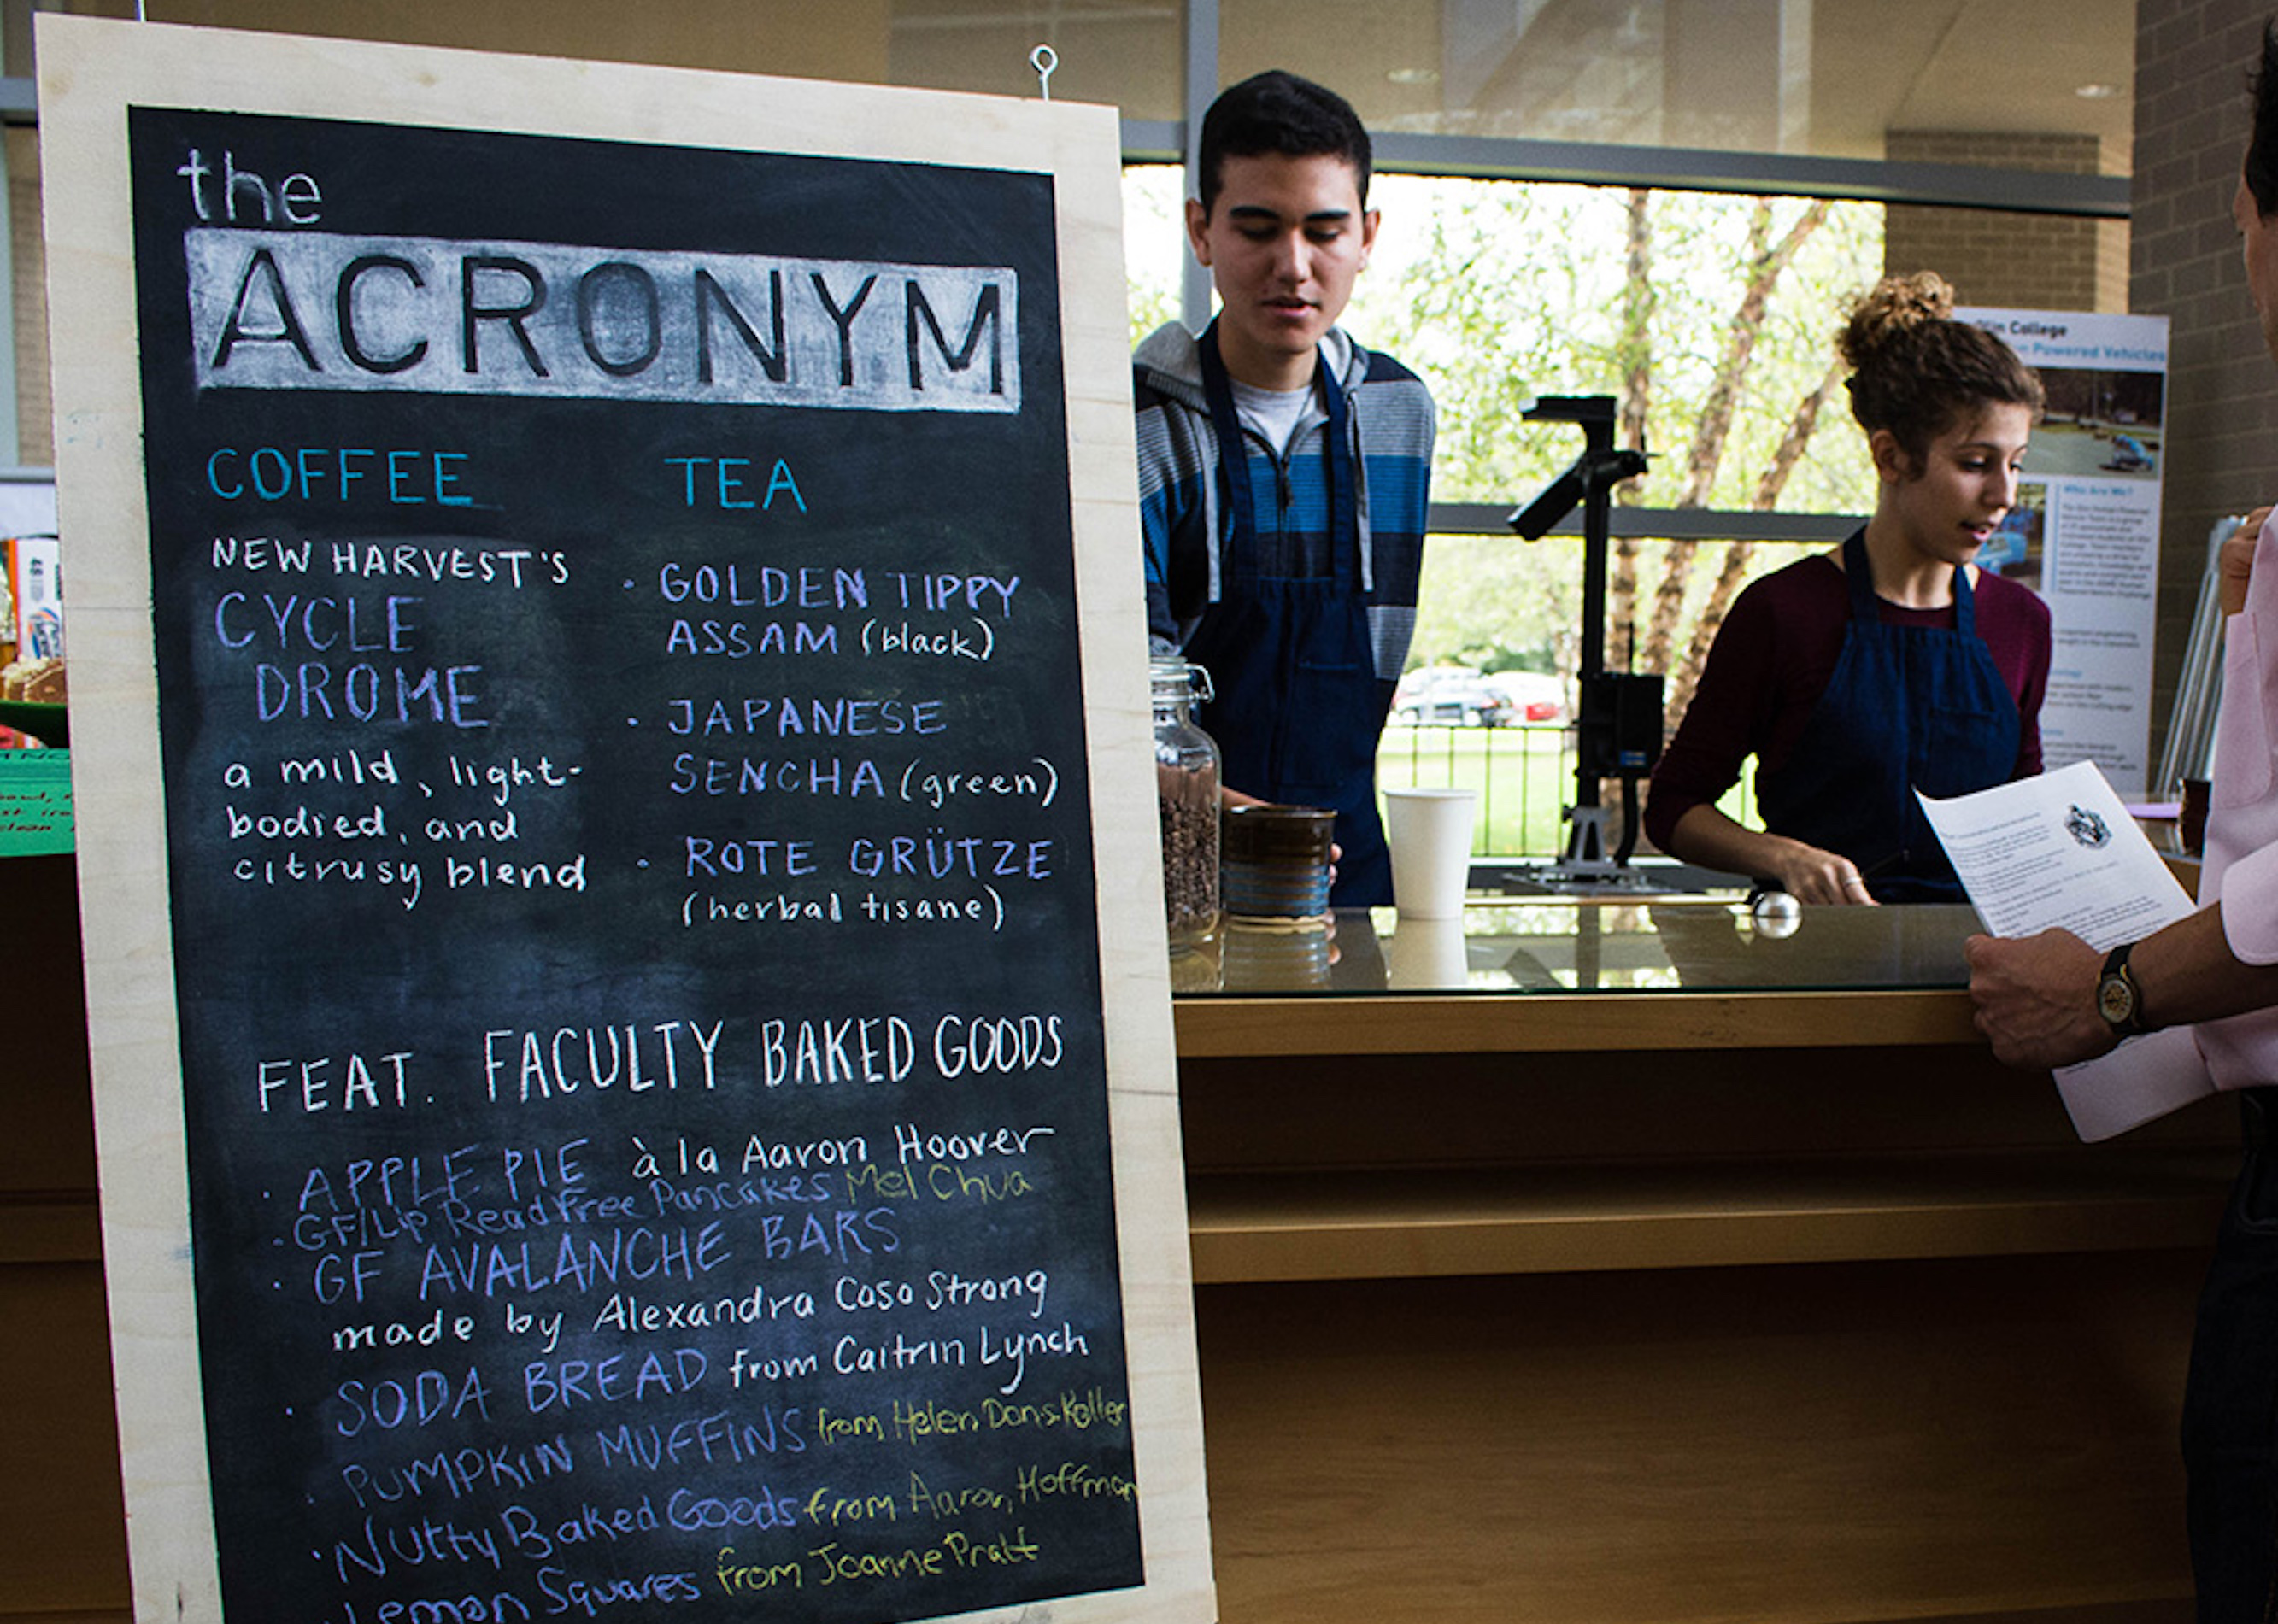 the
ACRONYM
COFFEE
NEW HARVEST'S
CYCLE
DROME
a mild, light-
bodied, and
citrusy blend
TEA
· GOLDEN TIPPY
ASSAM (black)
· JAPANESE
SENCHA (green)
· ROTE GRÜTZE
(herbal tisane)
FEAT. FACULTY BAKED GOODS
· APPLE PIE à la Aaron Hoover
· GF/Lip Read Free Pancakes Mel Chua
· GF AVALANCHE BARS
made by Alexandra Coso Strong
· SODA BREAD from Caitrin Lynch
· PUMPKIN MUFFINS from Helen Donis-Keller
· Nutty Baked Goods from Aaron Hoffman
Lemon Squares from Joanne Pratt
College
Powered Vehicles
Who Are We?